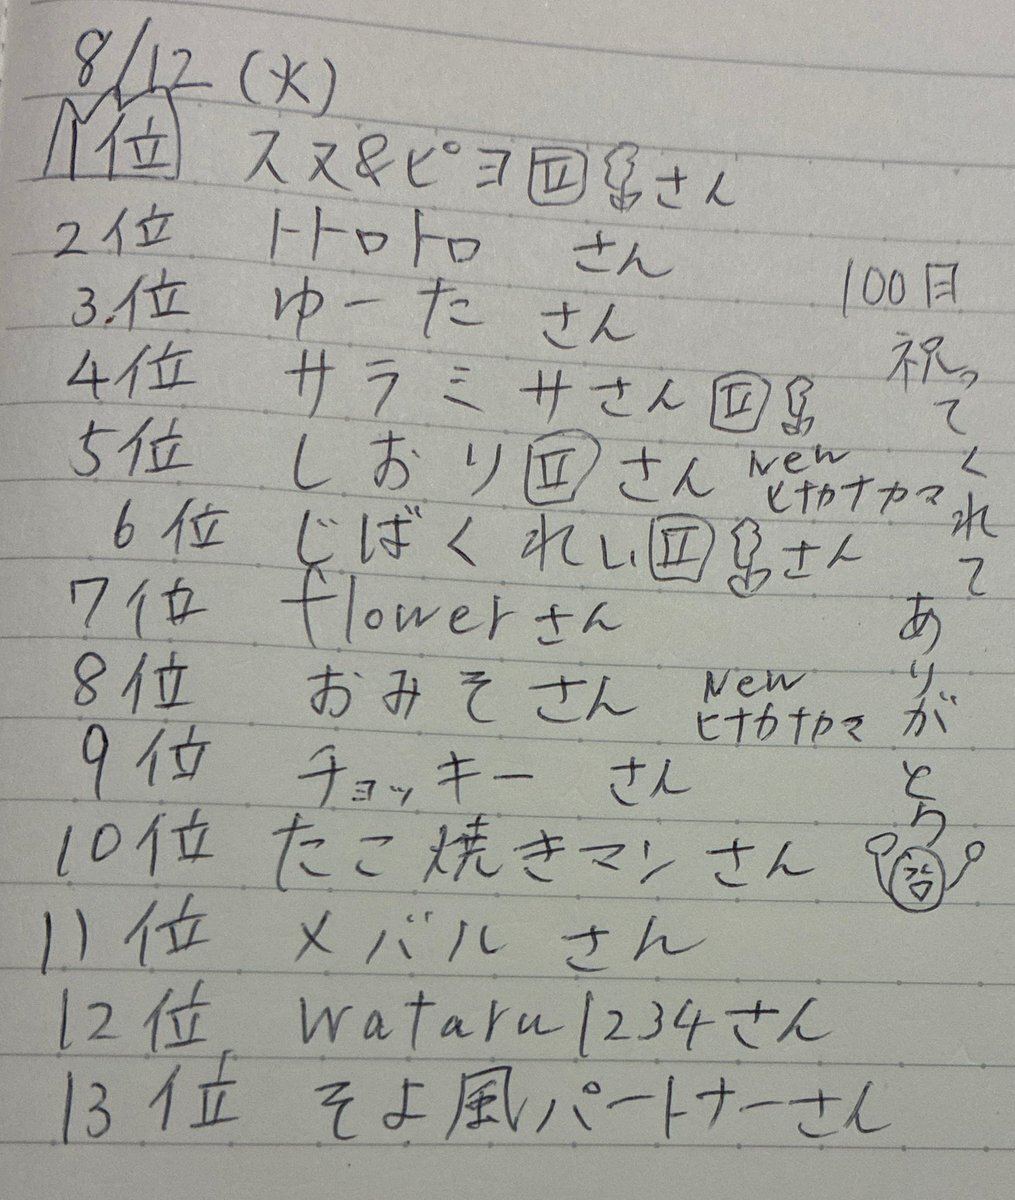 8/12(火)
1位 スヌ&ピヨ さん
2位 トトロトロ さん
3.位 ゆーた さん
4位 サラミサさん
5位 しおり さん New ヒナカナカマ
6位 じばくれい さん
7位 flowerさん
8位 おみそさん New ヒナカナカマ
9位 チョッキー さん
10位 たこ焼きマンさん
11位 メバル さん
12位 wataru1234さん
13位 そよ風パートナーさん
100日
祝ってくれて
ありがとう